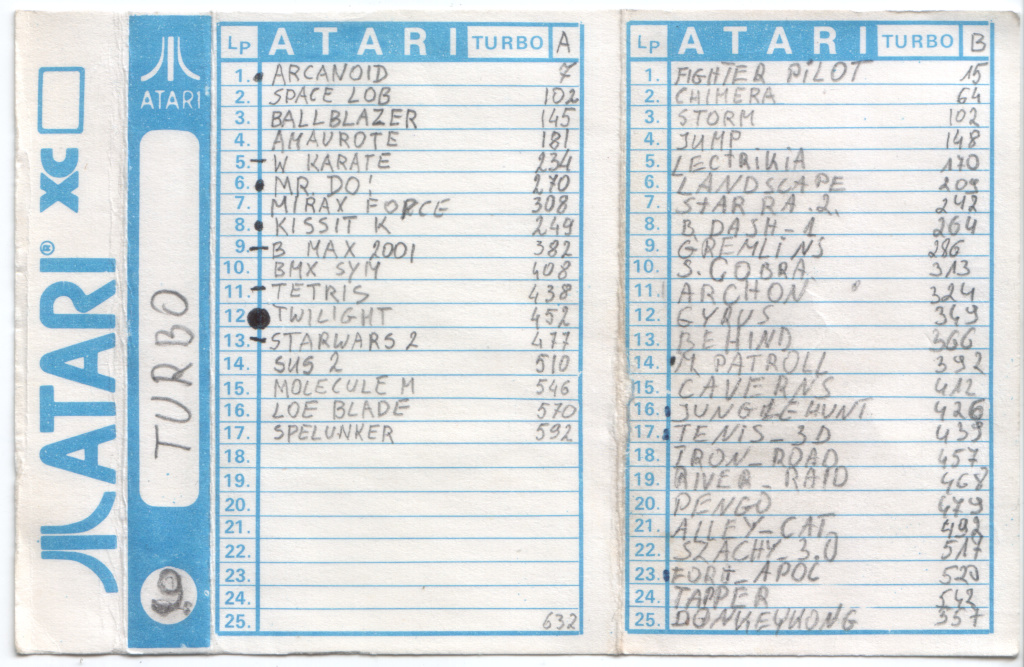 ATARI® XC
ATARI
TURBO
9.
Lp ATARI TURBO A
1. ARCANOID 7
2. SPACE LOB 102
3. BALLBLAZER 145
4. AMAUROTE 181
5. W KARATE 234
6. MR. DO! 270
7. MIRAX FORCE 308
8. KISSIT K 249
9. B MAX 2001 382
10. BMX SYM 408
11. TETRIS 438
12. TWILIGHT 452
13. STARWARS 2 477
14. SUS 2 510
15. MOLECULE M 546
16. LOE BLADE 570
17. SPELUNKER 592
18.
19.
20.
21.
22.
23.
24.
25. 632
Lp ATARI TURBO B
1. FIGHTER PILOT 15
2. CHIMERA 64
3. STORM 102
4. JUMP 148
5. LECTRIKIA 170
6. LANDSCAPE 209
7. STAR RA.2. 242
8. B DASH-1 264
9. GREMLINS 286
10. S.COBRA 313
11. ARCHON 324
12. GYRUS 349
13. BEHIND 366
14. M PATROLL 392
15. CAVERNS 412
16. JUNGLEHUNT 426
17. TENIS_3D 439
18. IRON_ROAD 457
19. RIVER_RAID 468
20. PENGO 479
21. ALLEY-CAT 492
22. SZACHY_3.0 517
23. FORT_APOC 520
24. TAPPER 542
25. DONKEYKONG 357